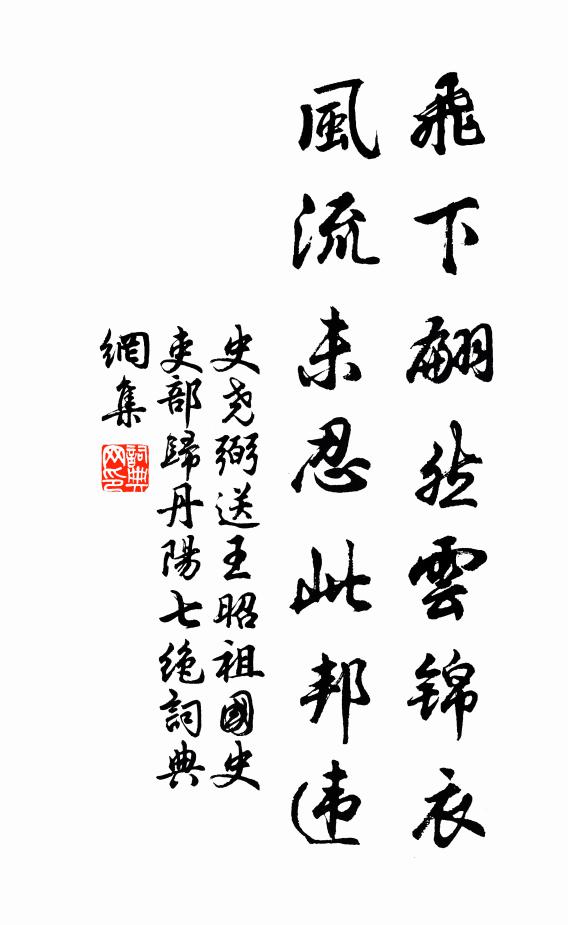 飛下翩然雲錦衣
風流未忍此邦違
史堯弼送王昭祖國史
吏部歸丹陽七絶詞典
網集
詞典網印